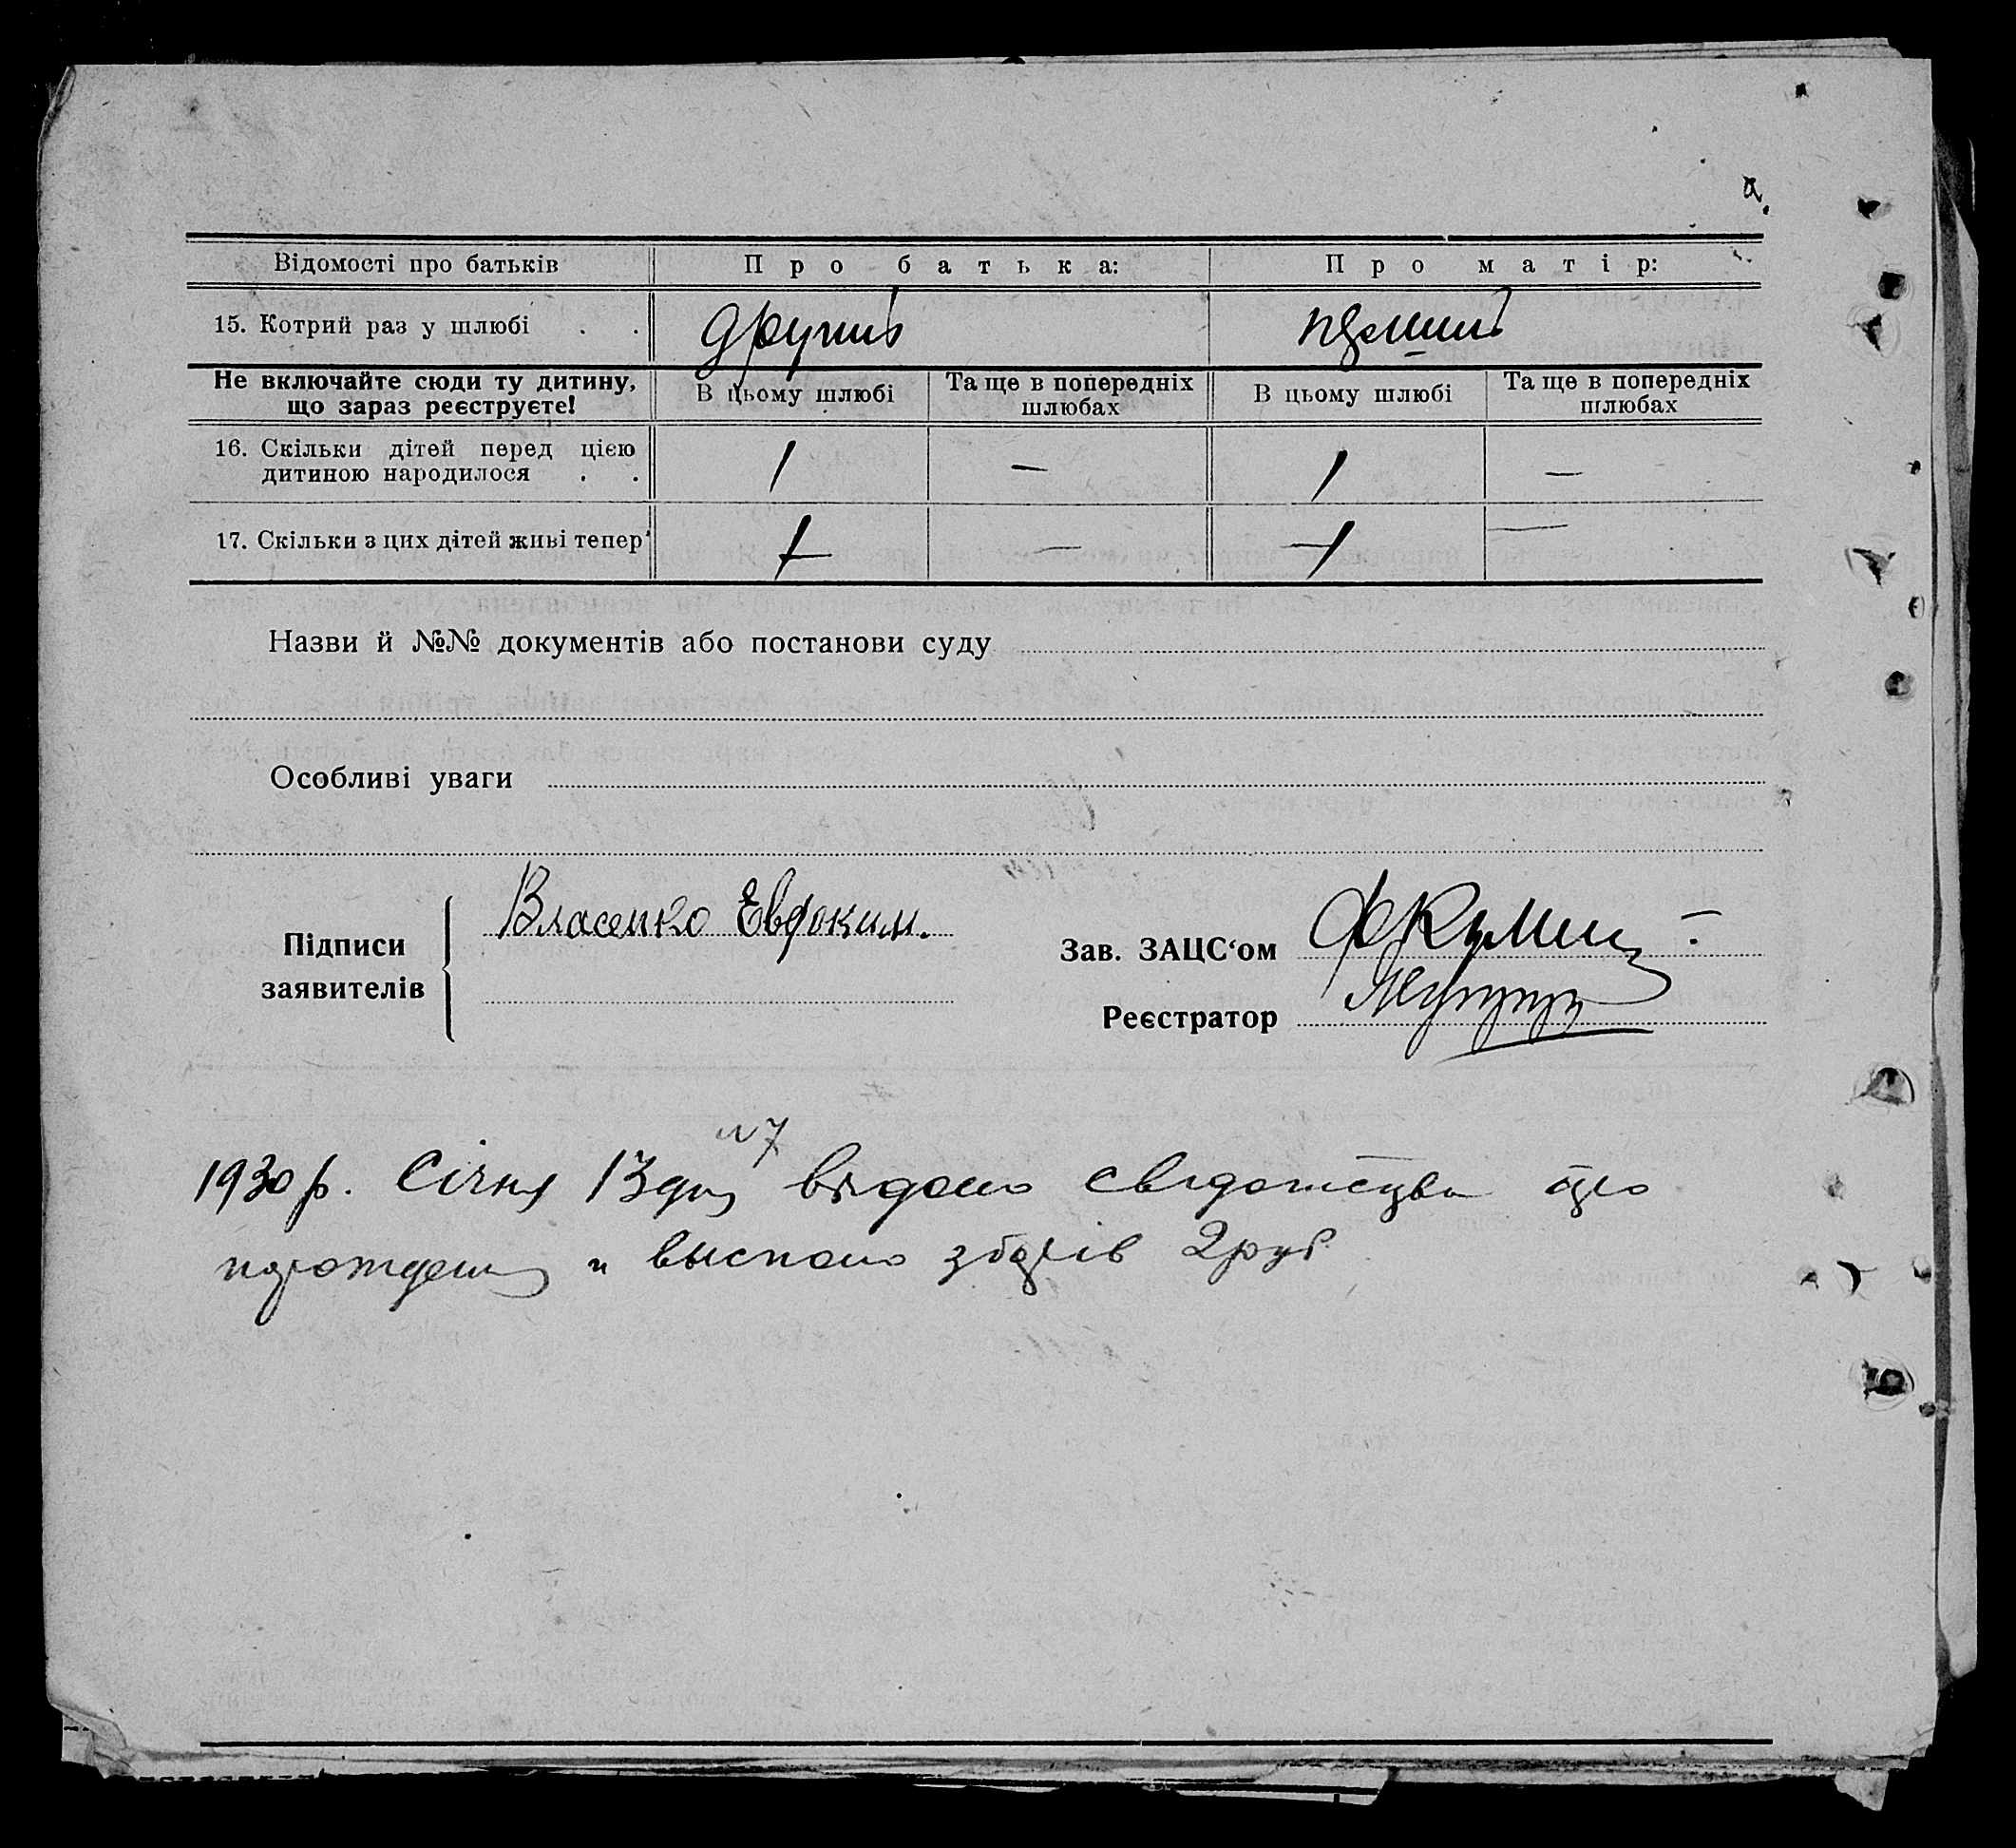 Відомості про батьків Про батька: Про матір:
15. Котрий раз у шлюбі . . другий
Не включайте сюди ту дитину, що зараз реєструєте! В цьому шлюбі Та ще в попередніх шлюбах В цьому шлюбі Та ще в попередніх шлюбах
16. Скільки дітей перед цією дитиною народилося . . 1 — 1 —
17. Скільки з цих дітей живі тепер — —
Назви й №№ документів або постанови суду
Особливі уваги
Підписи заявителів Власенко Евдоким.
Зав. ЗАЦС‘ом
Реєстратор
N 7
1930 р. Січня 13 дня видано свидотство про
рождения и выскано зборів 2 руб